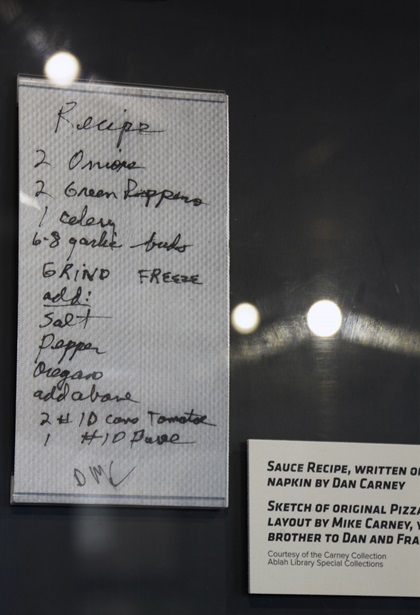 Recipe
2 Onions
2 Green Peppers
1 Celery
6-8 garlic buds
GRIND FREEZE
add:
Salt
Pepper
Oregano
add above
2 #10 cans Tomatoe
1 #10 Puree
DMC
SAUCE RECIPE, WRITTEN O
NAPKIN BY DAN CARNEY
SKETCH OF ORIGINAL PIZZA
LAYOUT BY MIKE CARNEY, Y
BROTHER TO DAN AND FRA
Courtesy of the Carney Collection
Ablah Library Special Collections